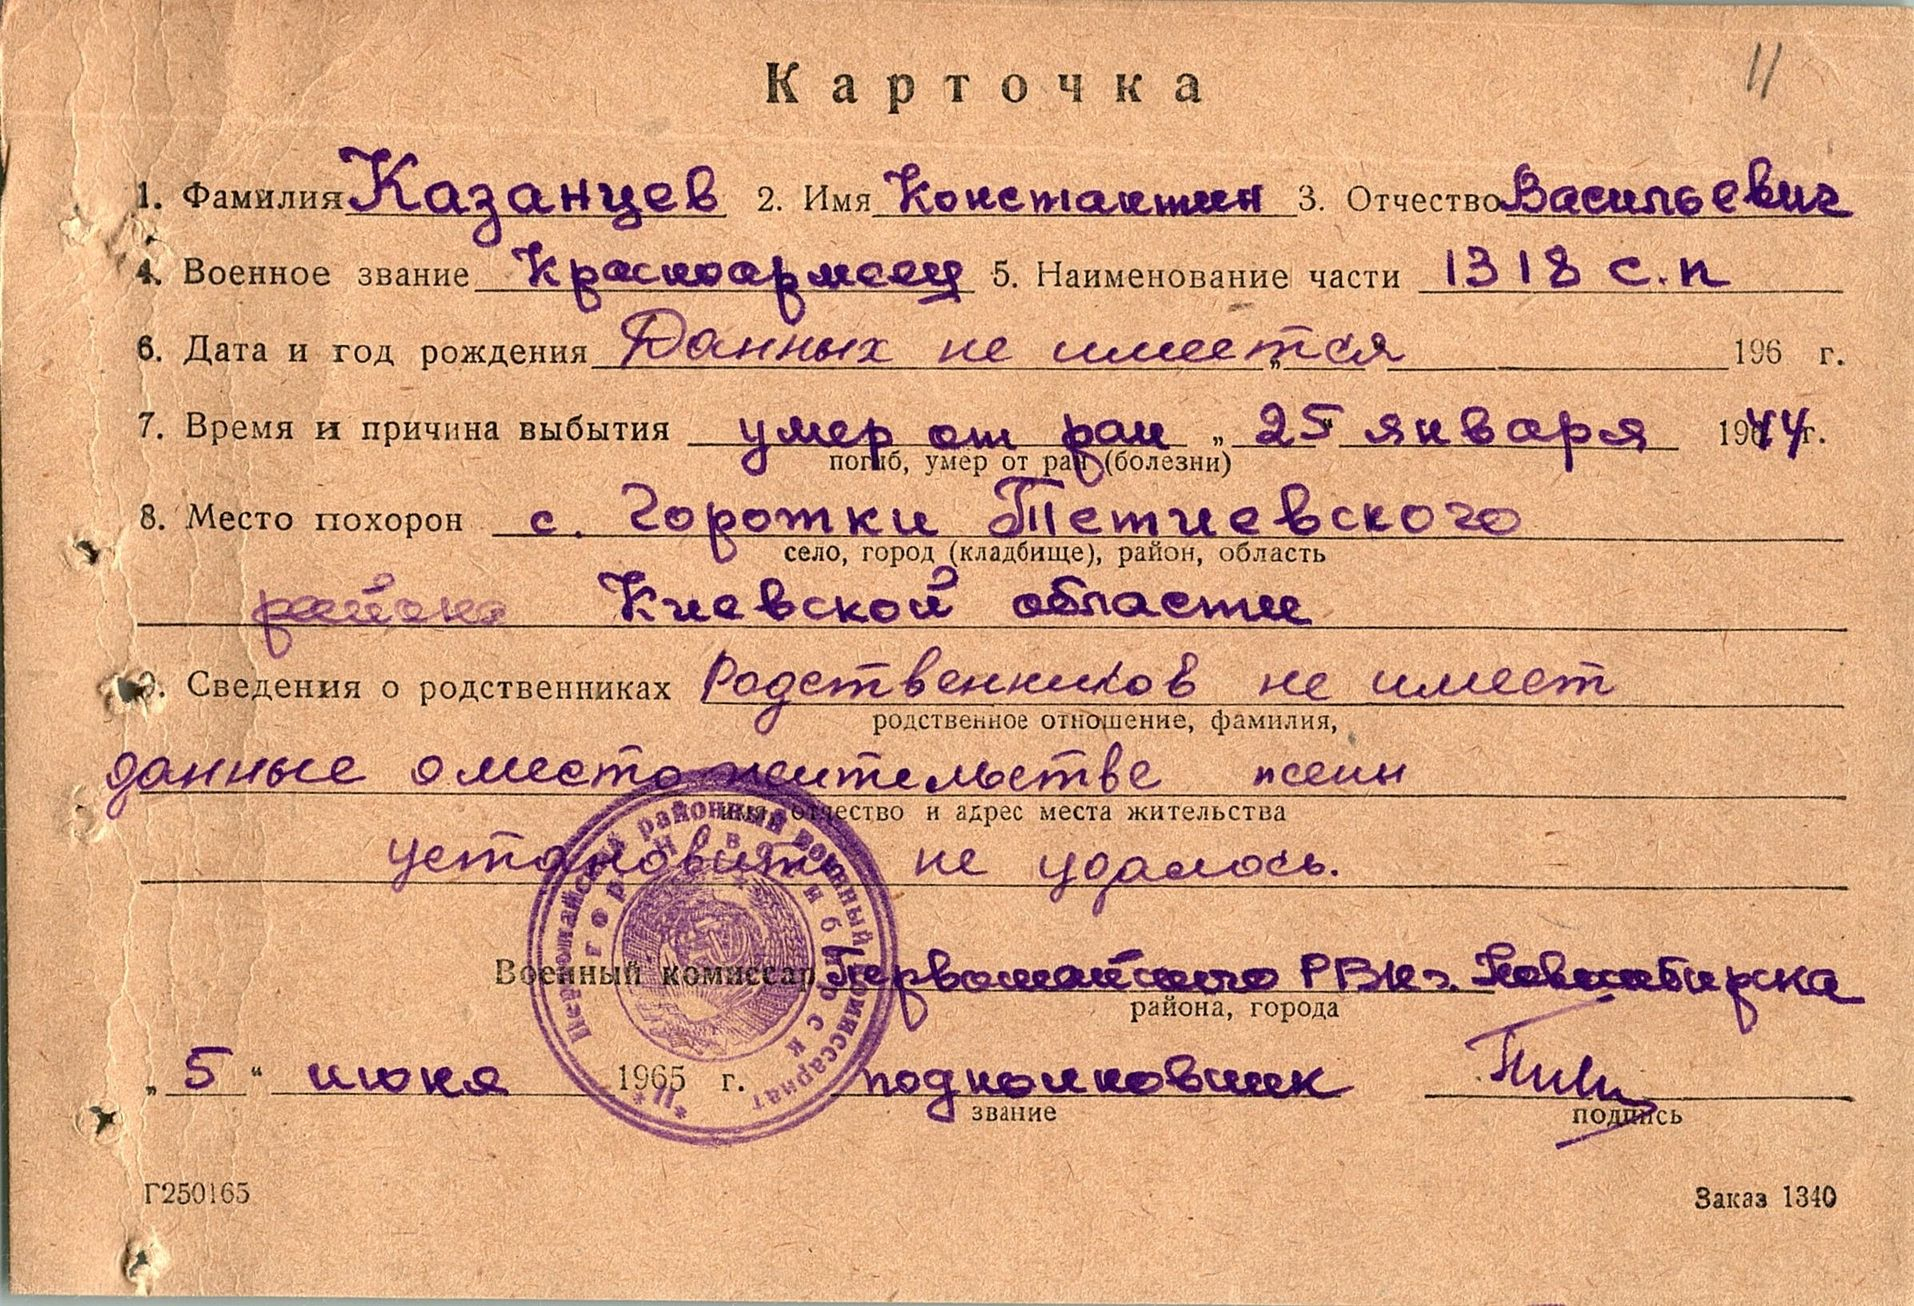 11
Карточка
1. Фамилия Казанцев 2. Имя Константин 3. Отчество Васильевич
4. Военное звание Красноармеец 5. Наименование части 1318 с.п
6. Дата и год рождения Данных не имеется „ 196 г.
7. Время и причина выбытия умер от ран „25" января 1944 г.
погиб, умер от ран (болезни)
8. Место похорон с. Горотки Тетиевского
село, город (кладбище), район, область
района Киевской области
9. Сведения о родственниках Родственников не имеет
родственное отношение, фамилия,
данные о место жительстве жены
имя, отчество и адрес места жительства
установить не удалось.
Военный комиссар Первомайского РВК г. Новосибирска
района, города
„5" июня 1965 г. подполковник
звание подпись
Первомайский районный военный комиссариат
гор. Новосибирск
Г250165 Заказ 1340